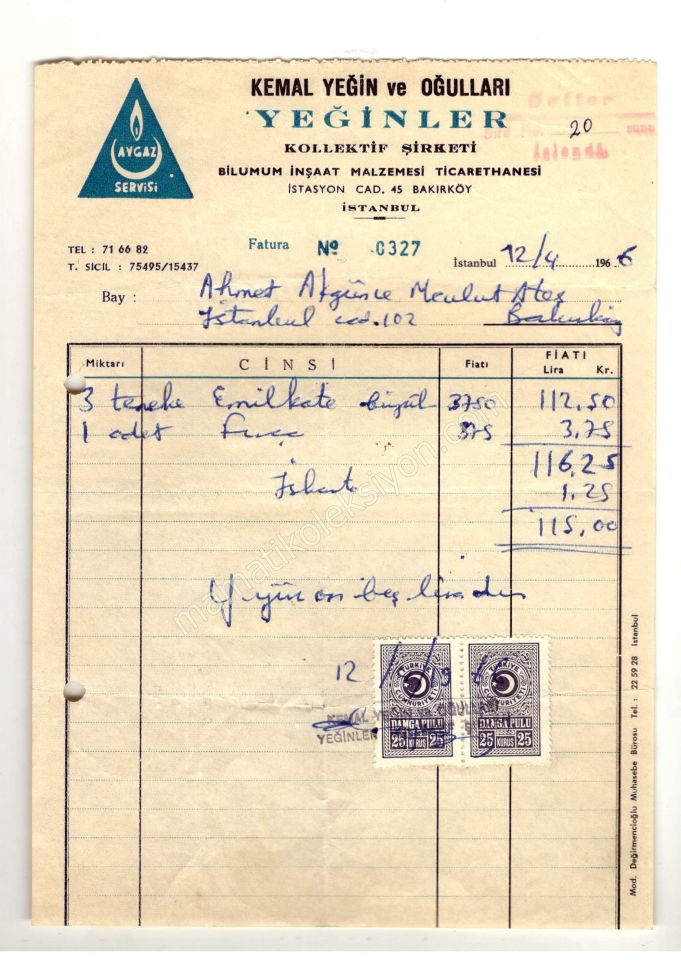 KEMAL YEĞİN ve OĞULLARI
YEĞİNLER
KOLLEKTİF ŞİRKETİ
BİLUMUM İNŞAAT MALZEMESİ TİCARETHANESİ
İSTASYON CAD. 45 BAKIRKÖY
İSTANBUL
AYGAZ
SERVİSİ
Defter
20
İşlendi
TEL : 71 66 82
T. SİCİL : 75495/15437
Fatura № 0327
İstanbul 12/4 1966
Bay : Ahmet Akgünce Mevlut Ateş
İstanbul cad. 102 Bakırköy
Miktarı CİNSİ Fiatı FİATI
Lira Kr.
3 teneke Emilkate 3750 112,50
1 adet Fırça 375 3,75
116,25
İskonto 1,25
115,00
Yüz on beş liradır
12
TÜRKİYE CUMHURİYETİ TÜRKİYE CUMHURİYETİ
DAMGA PULU DAMGA PULU
25 KURUŞ 25 25 KURUŞ 25
KEMAL YEĞİN ve OĞULLARI
YEĞİNLER
Mod. Değirmencioğlu Muhasebe Bürosu Tel. : 22 59 28 İstanbul
mamatikoleksiyon.com